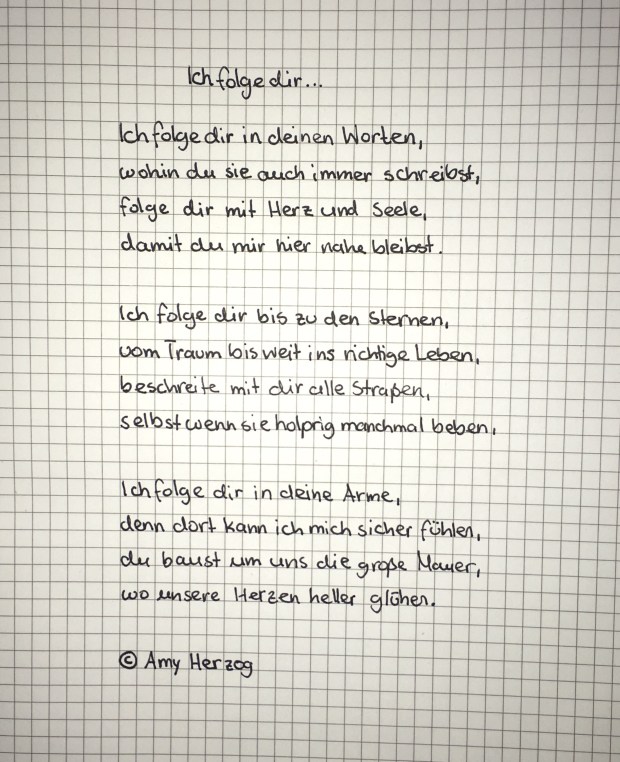 Ich folge dir...
Ich folge dir in deinen Worten,
wohin du sie auch immer schreibst,
folge dir mit Herz und Seele,
damit du mir hier nahe bleibst.
Ich folge dir bis zu den Sternen,
vom Traum bis weit ins richtige Leben,
beschreite mit dir alle Straßen,
selbst wenn sie holprig manchmal beben,
Ich folge dir in deine Arme,
denn dort kann ich mich sicher fühlen,
du baust um uns die große Mauer,
wo unsere Herzen heller glühen.
© Amy Herzog